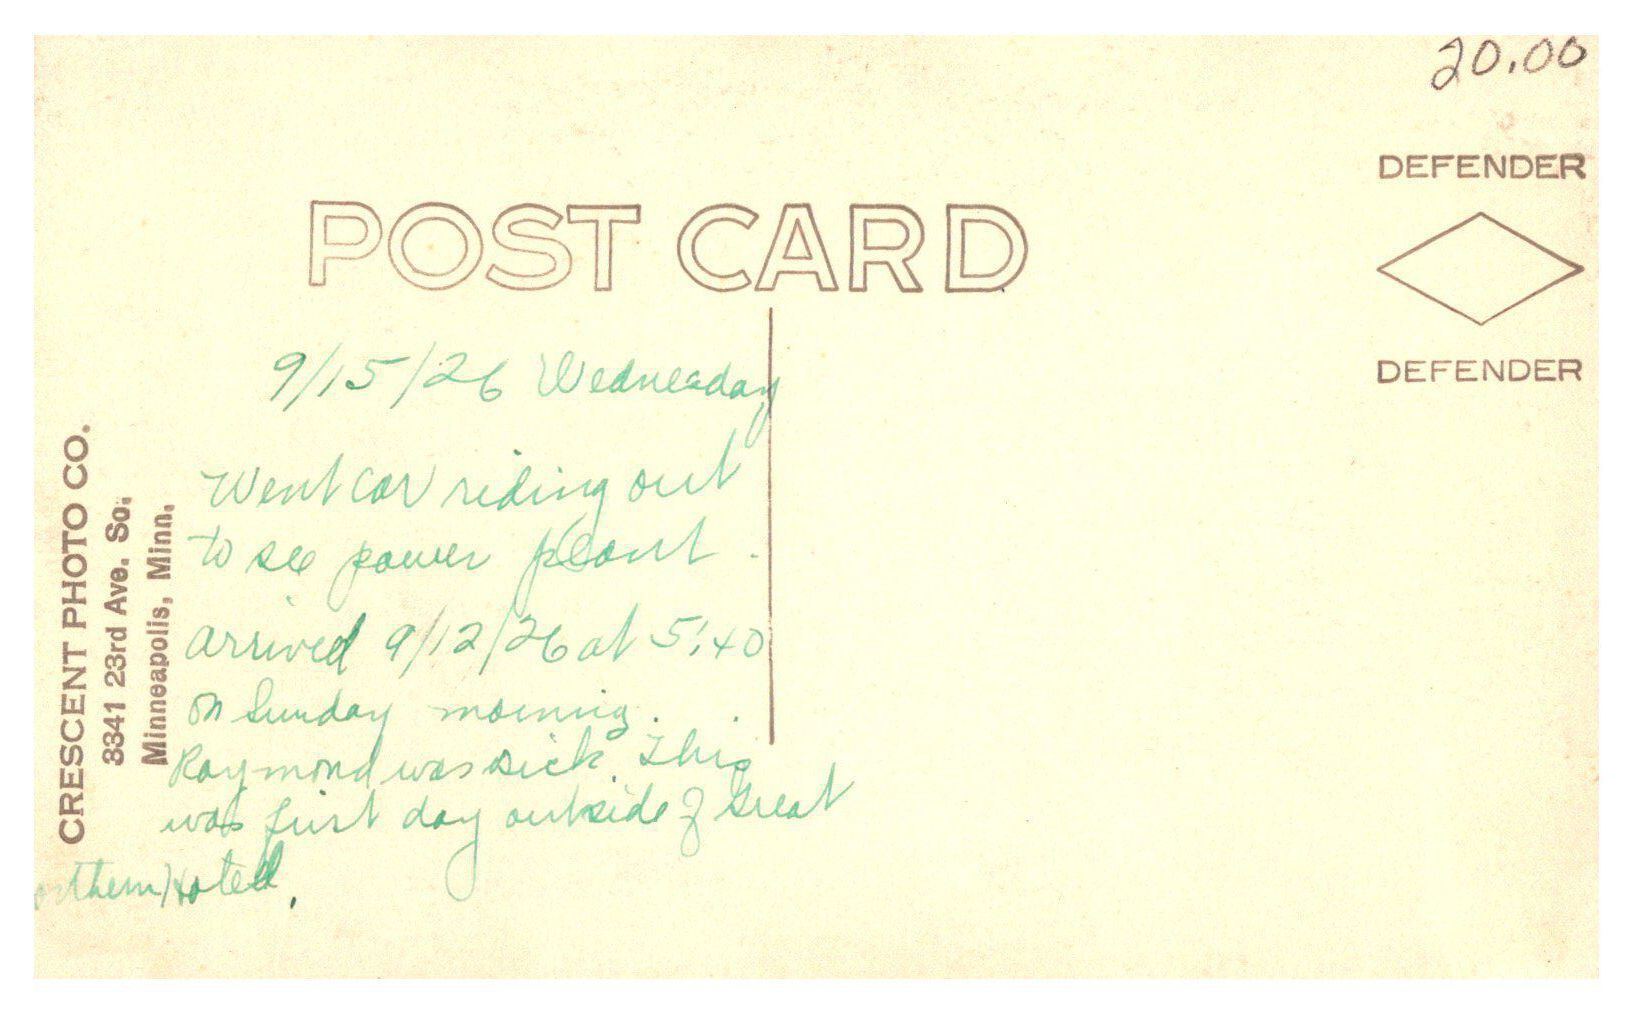 20.00
DEFENDER
DEFENDER
POST CARD
CRESCENT PHOTO CO.
3341 23rd Ave. So.
Minneapolis, Minn.
9/15/26 Wednesday
Went car riding out
to see power plant.
arrived 9/12/26 at 5:40
on Sunday morning.
Raymond was sick. This
was first day outside of Great
orthern Hotel.